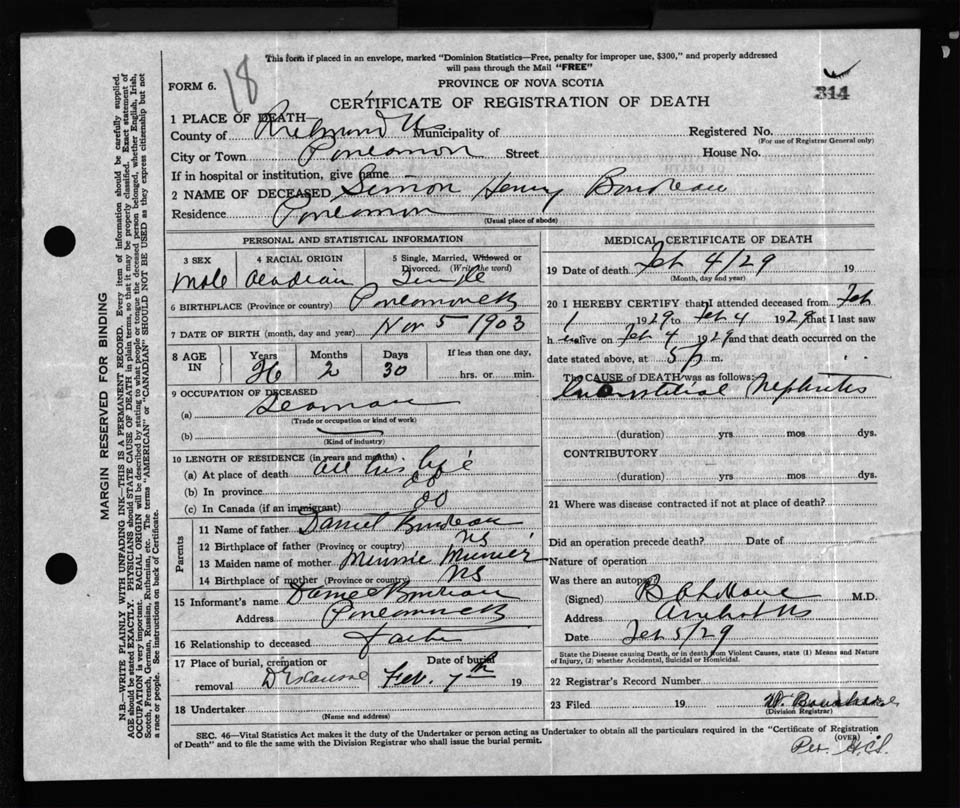 This form if placed in an envelope, marked "Dominion Statistics—Free, penalty for improper use, $300," and properly addressed
will pass through the Mail "FREE"
FORM 6.
18
PROVINCE OF NOVA SCOTIA
CERTIFICATE OF REGISTRATION OF DEATH
314
1 PLACE OF DEATH
County of Richmond Municipality of Registered No.
(For use of Registrar General only)
City or Town Street House No.
If in hospital or institution, give name
2 NAME OF DECEASED Simon Henry Boudreau
Residence
(Usual place of abode)
PERSONAL AND STATISTICAL INFORMATION
3 SEX 4 RACIAL ORIGIN 5 Single, Married, Widowed or
Divorced. (Write the word)
Male Acadian Single
6 BIRTHPLACE (Province or country)
7 DATE OF BIRTH (month, day and year) Nov 5 1903
8 AGE IN Years Months Days If less than one day,
26 2 30 hrs. or min.
9 OCCUPATION OF DECEASED
(a) Seaman
(Trade or occupation or kind of work)
(b)
(Kind of industry)
10 LENGTH OF RESIDENCE (in years and months)
(a) At place of death all his life
(b) In province do
(c) In Canada (if an immigrant) do
Parents
11 Name of father Daniel Boudreau
12 Birthplace of father (Province or country) NS
13 Maiden name of mother Minnie
14 Birthplace of mother (Province or country) NS
15 Informant's name Daniel Boudreau
Address
16 Relationship to deceased father
17 Place of burial, cremation or Date of burial
removal D'Escousse Feb. 7th 19
18 Undertaker
(Name and address)
MEDICAL CERTIFICATE OF DEATH
19 Date of death Feb 4/29 19
(Month, day and year)
20 I HEREBY CERTIFY that I attended deceased from Feb
1 1929 to Feb 4 1929 that I last saw
h alive on Feb 4 1929 and that death occurred on the
date stated above, at 5 p m.
The CAUSE of DEATH was as follows:
Interstitial Nephritis
(duration) yrs mos dys.
CONTRIBUTORY
(duration) yrs. mos. dys.
21 Where was disease contracted if not at place of death?
Did an operation precede death? Date of
Nature of operation
Was there an autopsy
(Signed) M.D.
Address Arichat NS
Date Feb 5/29
State the Disease causing Death, or in death from Violent Causes, state (1) Means and Nature
of Injury, (2) whether Accidental, Suicidal or Homicidal.
22 Registrar's Record Number
23 Filed 19
(Division Registrar)
SEC. 46—Vital Statistics Act makes it the duty of the Undertaker or person acting as Undertaker to obtain all the particulars required in the "Certificate of Registration
of Death" and to file the same with the Division Registrar who shall issue the burial permit.
(OVER)
Per.
MARGIN RESERVED FOR BINDING
N.B.—WRITE PLAINLY WITH UNFADING INK—THIS IS A PERMANENT RECORD. Every item of information should be carefully supplied.
AGE should be stated EXACTLY. PHYSICIANS should STATE CAUSE OF DEATH in plain terms, so that it may be properly classified. Exact statement of
OCCUPATION is very important. RACIAL ORIGIN will be described by stating to what people or tongue the deceased person belonged, whether English, Irish,
Scotch, French, German, Russian, Ruthenian, etc. The terms "AMERICAN" or "CANADIAN" SHOULD NOT BE USED as they express citizenship but not
a race or people. See instructions on back of Certificate.